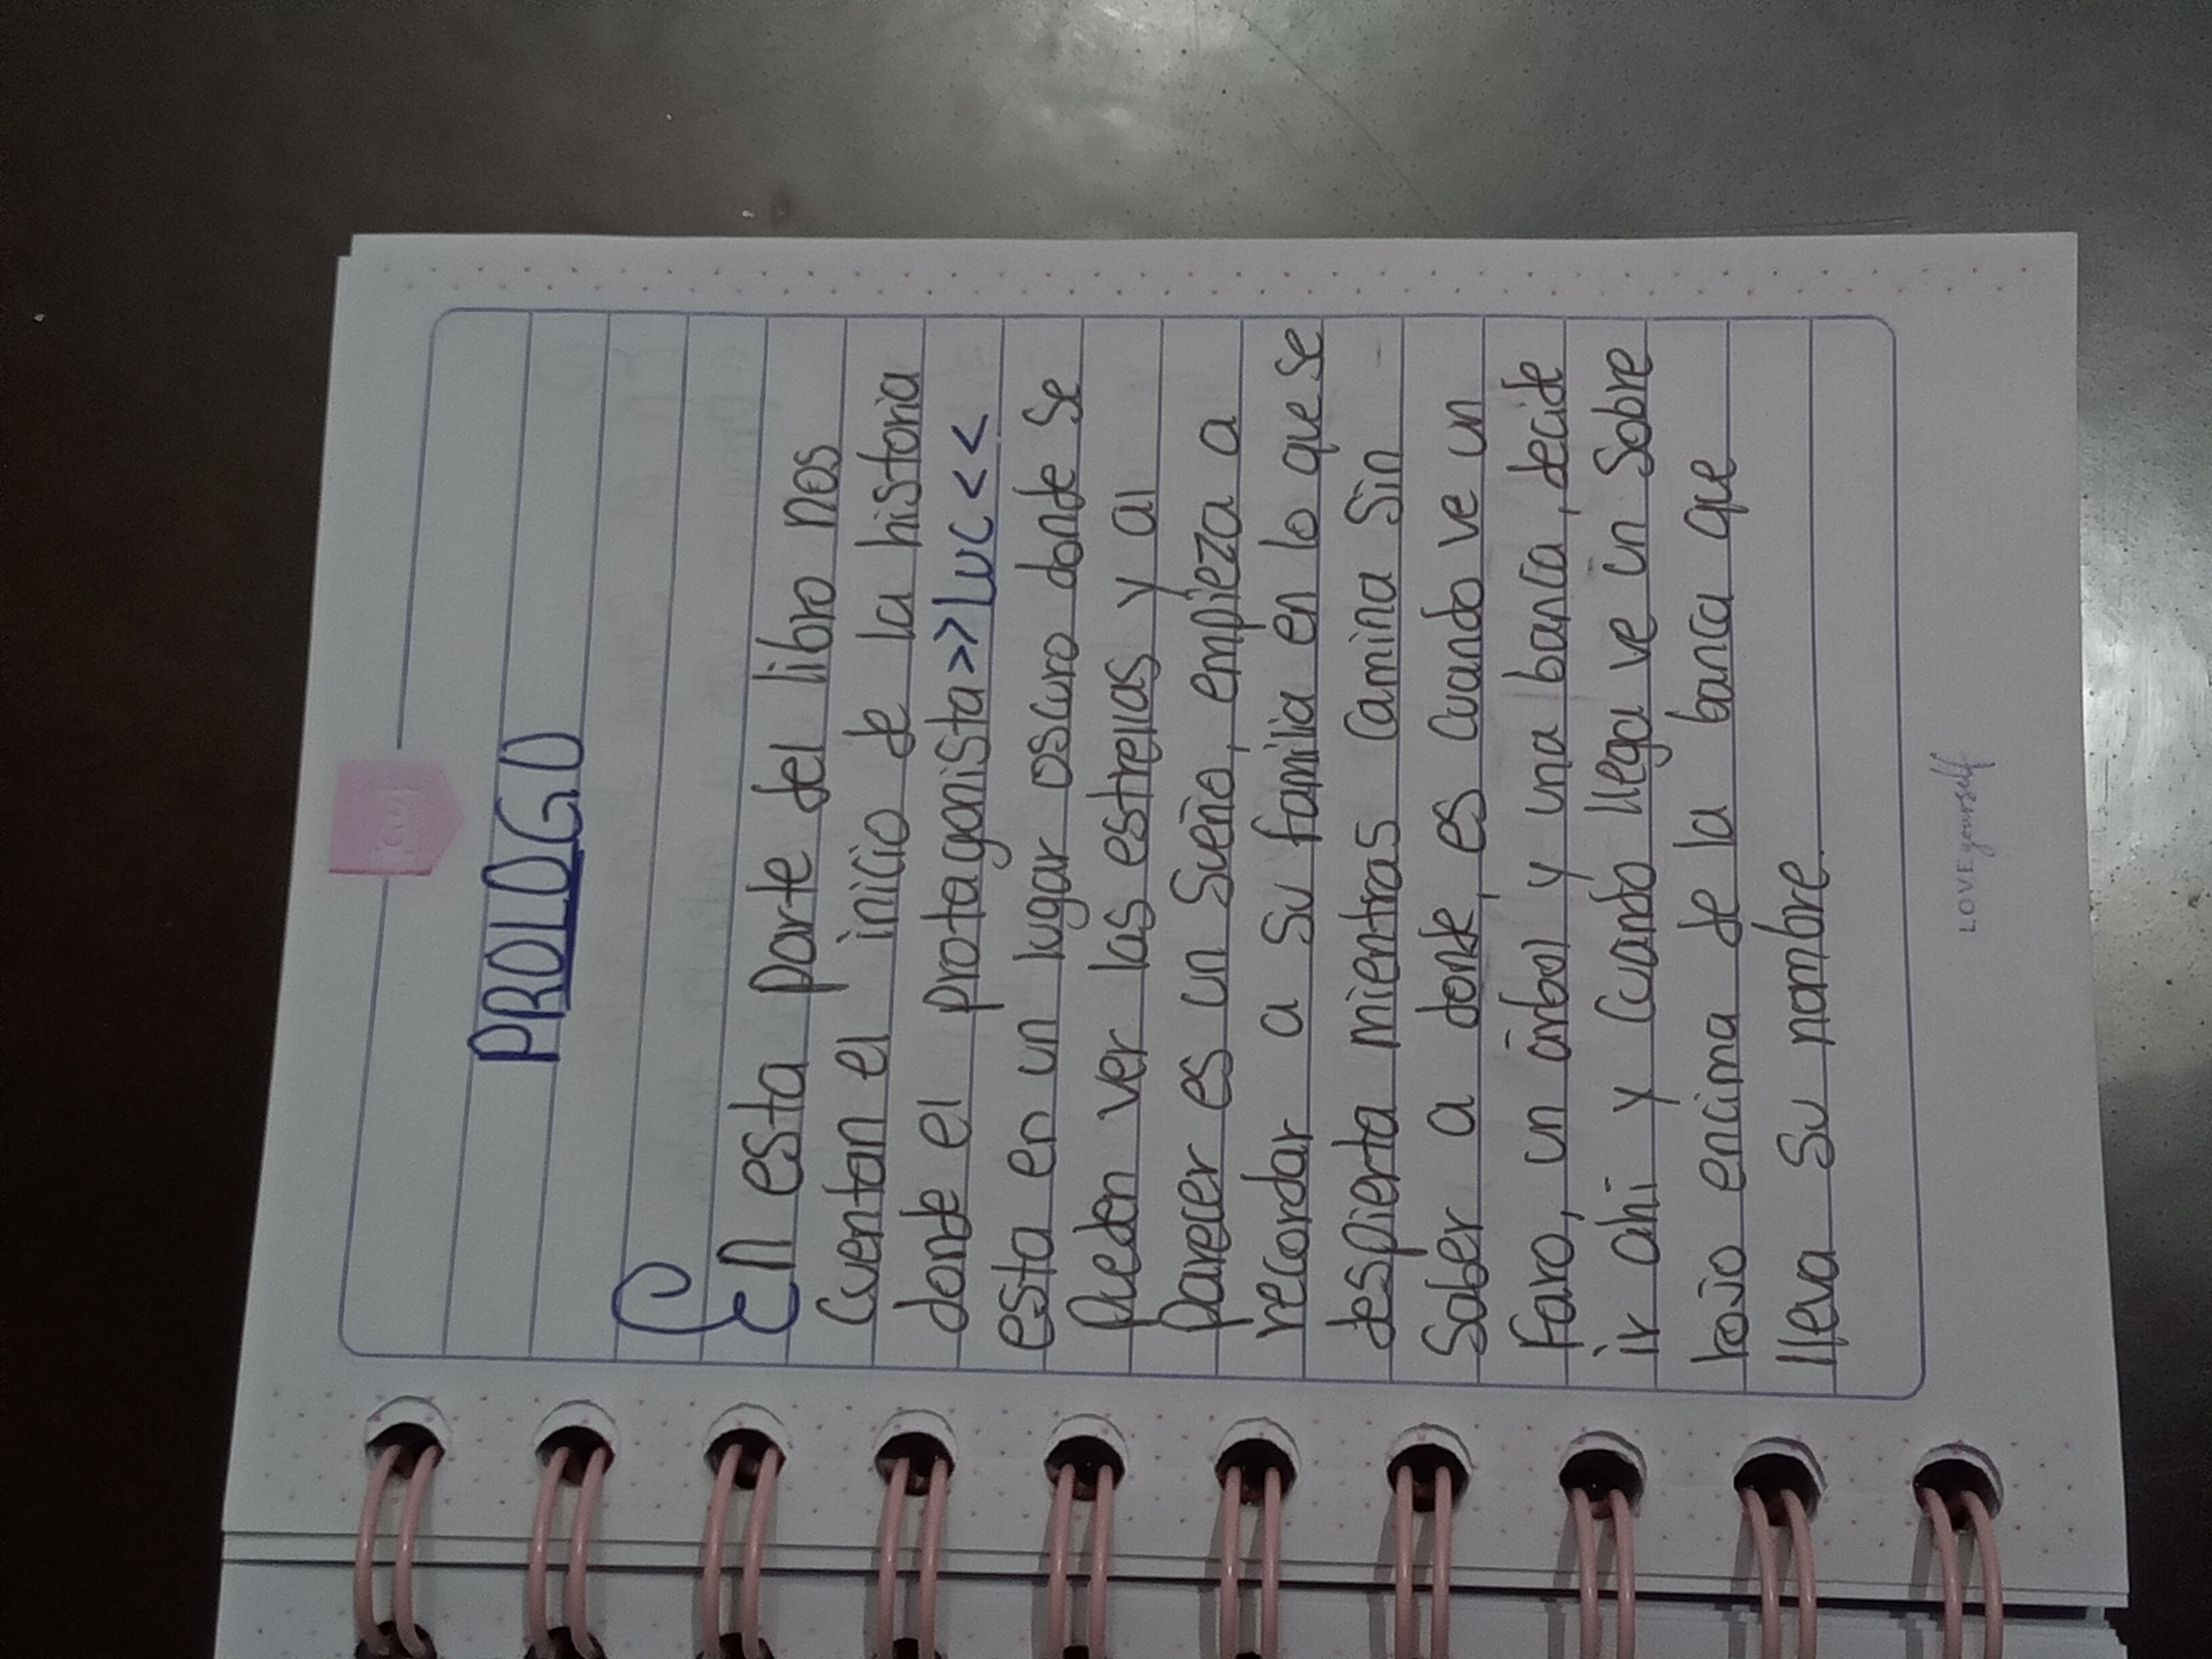 PROLOGO
En esta parte del libro nos
cuentan el inicio de la historia
donde el protagonista >>Luc<<
esta en un lugar oscuro donde se
pueden ver las estrellas y al
parecer es un sueño, empieza a
recordar a su familia en lo que se
despierta mientras camina sin
saber a donde, es cuando ve un
faro, un árbol y una banca, decide
ir ahi y cuando llega ve un sobre
rojo encima de la banca que
lleva su nombre.
LOVE yourself